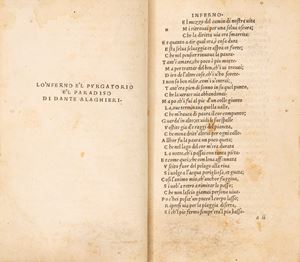 LO'NFERNO E'L PVRGATORIO
E'L PARADISO
DI DANTE ALAGHIERI.
INFERNO.
NEl mezzo del camin di nostra vita
Mi ritrovai per una selva oscura;
Che la diritta via era smarrita:
Et quanto a dir qual era, è cosa dura
Esta selva selvaggia et aspra et forte;
Che nel pensier rinnova la paura.
Tant'è amara; che poco è piu morte:
Ma per trattar del ben, ch'i vi trovai;
Diro de l'altre cose, ch'i v'ho scorte.
I non so ben ridir, com'i v'entrai;
Tant'era pien di sonno in su quel punto,
Che la verace via abbandonai.
Ma po ch'i fui al pie d'un colle giunto
La, ove terminava quella valle,
Che m'havea di paura il cor compunto;
Guardai in alto, et vidi le sue spalle
Vestite gia de raggi del pianeta,
Che mena dritt'altrui per ogni calle.
Allhor fu la paura un poco queta;
Che nel lago del cor m'era durata
La notte, ch'i passai con tanta pieta.
Et come quei; che con lena affannata
Uscito fuor del pelago a la riva
Si volge a l'acqua perigliosa, et guata;
Cosi l'animo mio, ch'anchor fuggiva,
Si volse a retro a rimirar lo passo;
Che non lascio giamai persona viva.
Poi
Ripresi via per la piaggia diserta,
Si che'l pie fermo sempr'era'l piu basso.
a ii